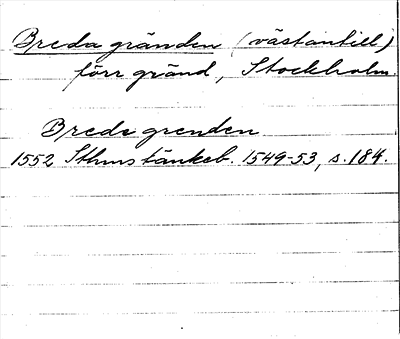 Breda gränden (västantill)
förr gränd, Stockholm.
Brede grenden
1552 Sthms tänkeb. 1549-53, s. 184.